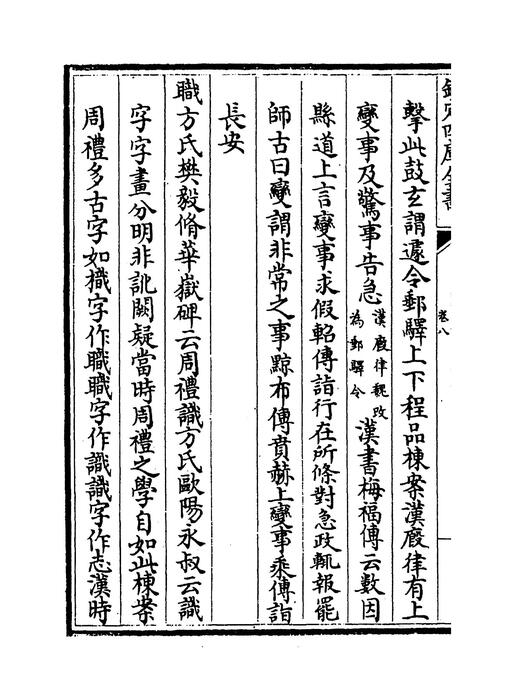 欽定四庫全書
卷八
擊此鼓玄謂遽令郵驛上下程品棟案漢廄律有上
變事及驚事告急漢廄律魏改為郵驛令漢書梅福傳云數因
縣道上言變事求假軺傳詣行在所條對急政輒報罷
師古曰變謂非常之事黥布傳賁赫上變事乘傳詣
長安
職方氏樊毅脩華嶽碑云周禮識方氏歐陽永叔云識
字字畫分明非訛闕疑當時周禮之學自如此棟案
周禮多古字如樴字作職職字作識識字作志漢時